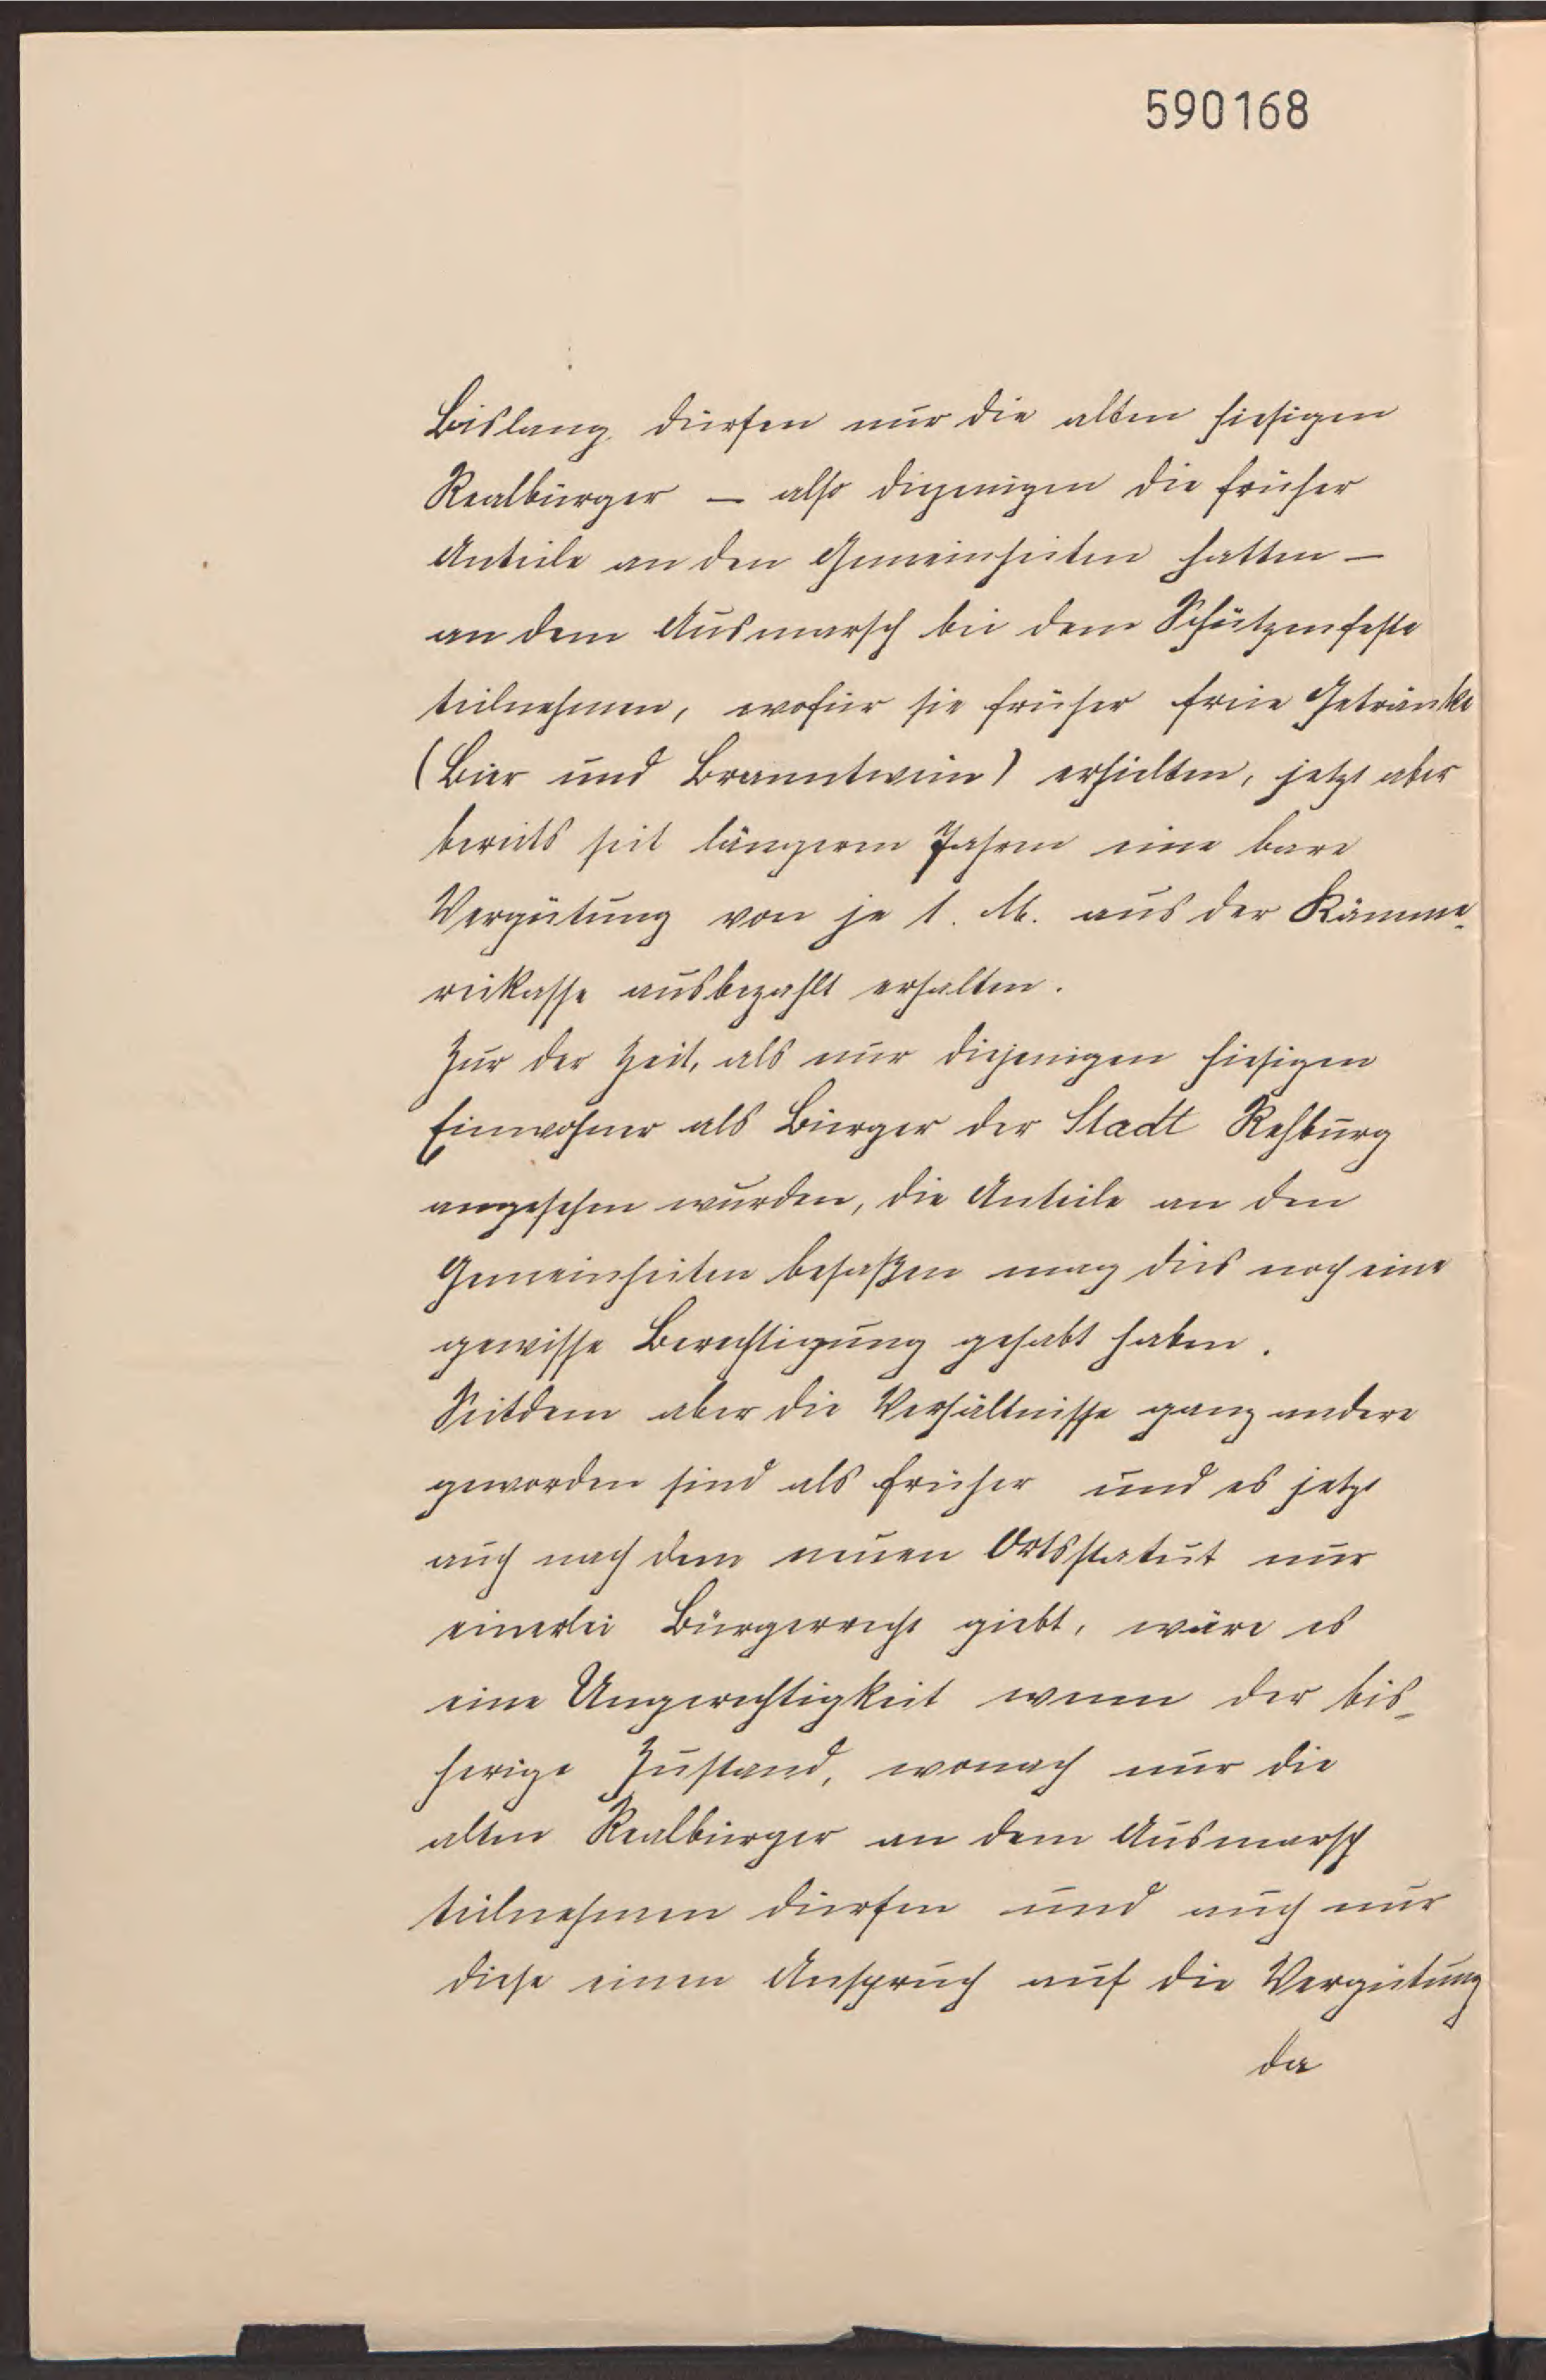 590168
Bislang dürfen nur die alten hiesigen
Realbürger — also diejenigen die früher
Anteile an den Gemeinheiten hatten —
an dem Ausmarsch bei dem Schützenfeste
teilnehmen, wofür sie früher freie Getränke
(Bier und Branntwein) erhielten, jetzt aber
bereits seit längeren Jahren eine bare
Vergütung von je 1. M. aus der Kämme-
reikasse ausbezahlt erhalten.
Zur der Zeit, als nur diejenigen hiesigen
Einwohner als Bürger der Stadt Rehburg
angesehen wurden, die Anteile an den
Gemeinheiten besaßen mag dies noch eine
gewisse Berechtigung gehabt haben.
Seitdem aber die Verhältnisse ganz andere
geworden sind als früher und es jetzt
auch nach dem neuen Ortsstatut nur
einerlei Bürgerrecht giebt, wäre es
eine Ungerechtigkeit wenn der bis-
herige Zustand, wonach nur die
alten Realbürger an dem Ausmarsch
teilnehmen dürfen und auch nur
diese einen Anspruch auf die Vergütung
da